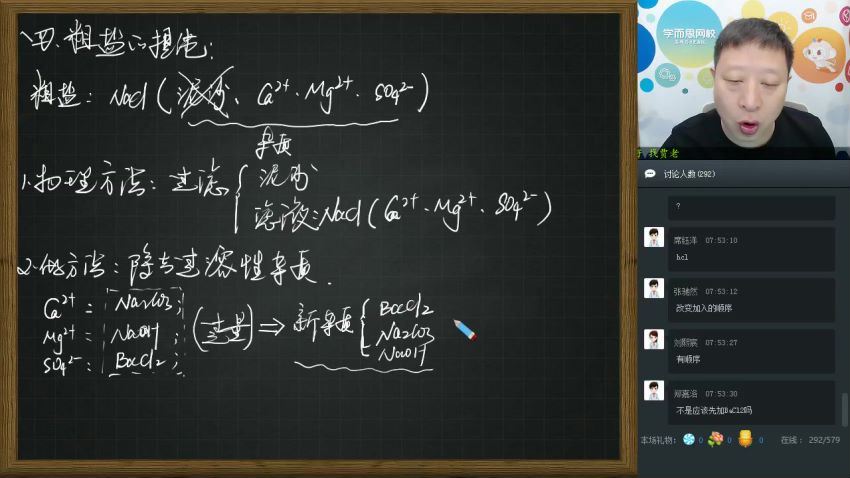 四、粗盐的提纯:
粗盐: NaCl (泥沙、Ca²⁺、Mg²⁺、SO₄²⁻)
杂质
1.物理方法: 过滤 { 泥沙
滤液: NaCl (Ca²⁺、Mg²⁺、SO₄²⁻)
2.化学方法: 除去可溶性杂质.
Ca²⁺: Na2CO3;
Mg²⁺: NaOH;
SO₄²⁻: BaCl2;
(过量) ⇒ 新杂质 { BaCl2
Na2CO3
NaOH
学而思网校
讨论人数(292)
?
07:53:10
hcl
07:53:12
改变加入的顺序
07:53:27
有顺序
07:53:30
不是应该先加BaCl2吗
本场礼物: 0 0 0 在线: 292/579